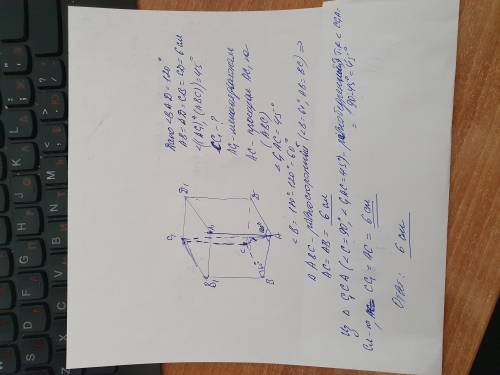 Дано: ∠BAD = 120°
AB = AD = CB = CD = 6 см
∠(AC₁; (ABC)) = 45°
CC₁ - ?
AC - проекция AC₁ на
(ABC)
∠C₁AC = 45°
∠B = 180° - 120° = 60°
Δ ABC - равносторонний (∠B = 60°, AB = BC) =>
AC = AB = 6 см
Из Δ C₁CA (∠C = 90°, ∠C₁AC = 45°) - равнобедренный, т.к. ∠CC₁A =
= 90 - 45° = 45°
CC₁ = AC = 6 см
Ответ: 6 см
D₁
C₁
B₁
A₁
D
C
A
B